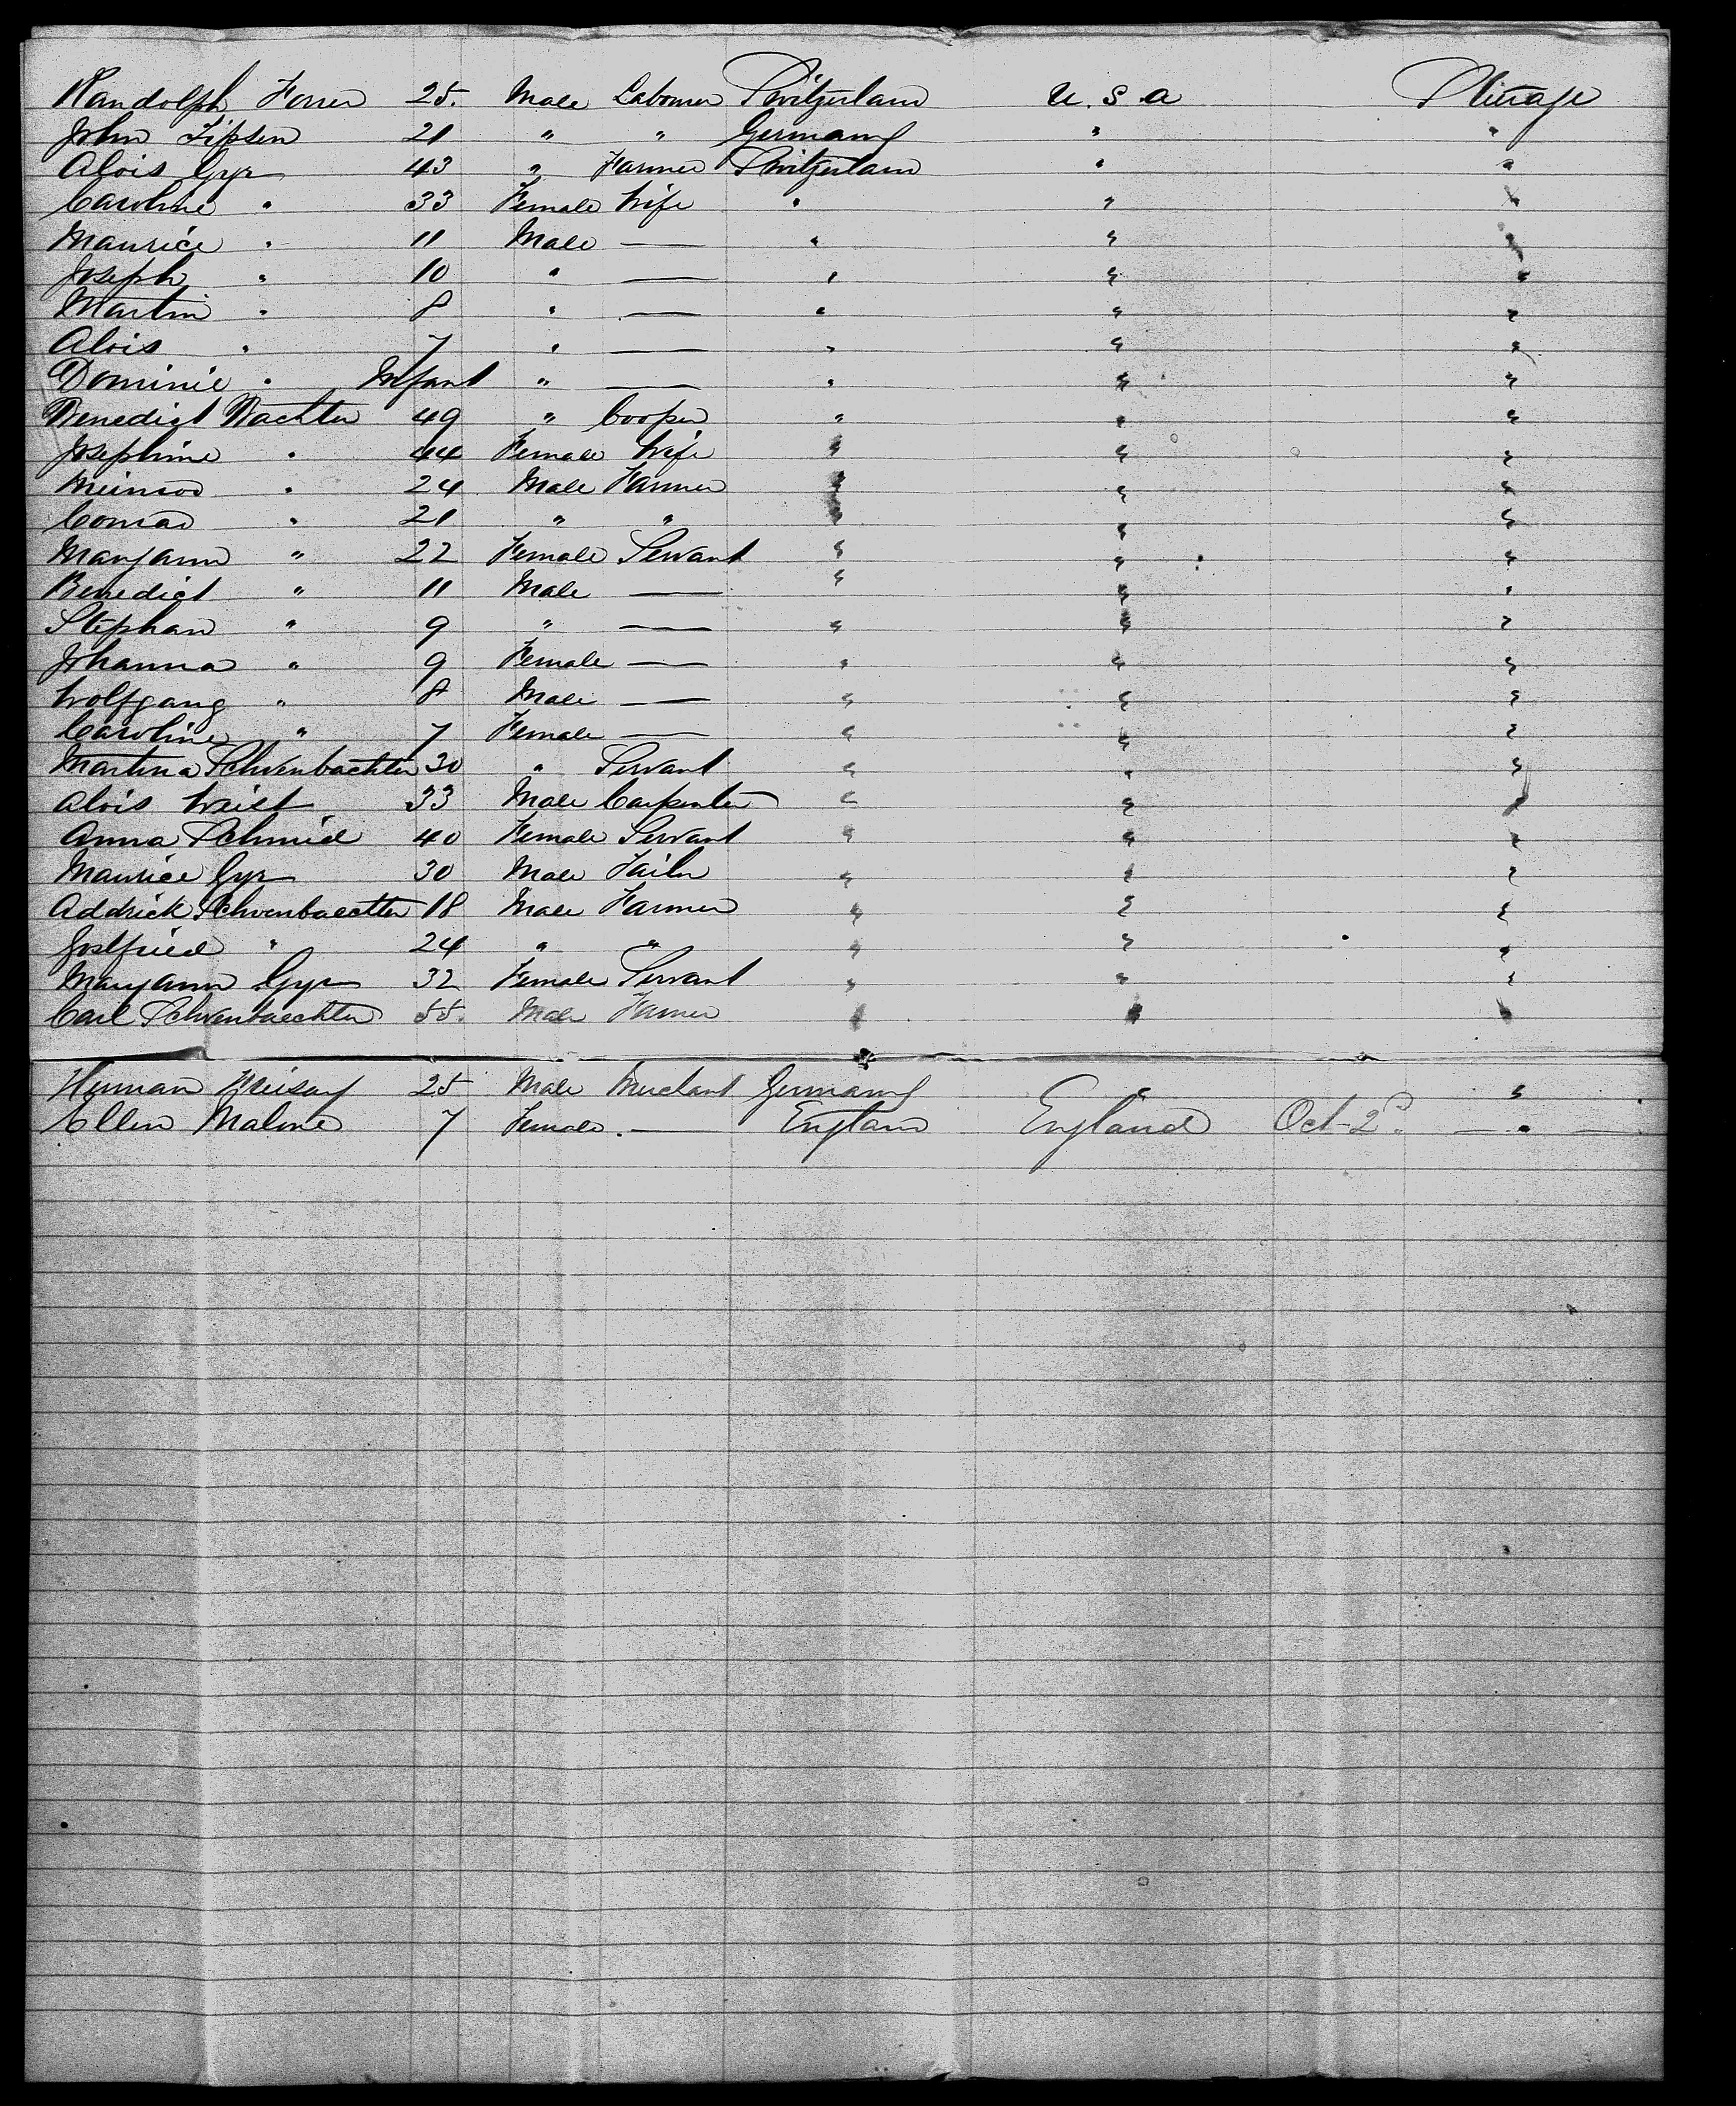 Randolph Ferrer 25. Male Labourer Switzerland U. S. A Steerage
John Lipsen 21 " " Germany " "
Alois Gyr 43 " Farmer Switzerland " "
Caroline " 33 Female Wife " " "
Maurice " 11 Male — " " "
Joseph " 10 " — " " "
Martin " 8 " — " " "
Alois " 7 " — " " "
Dominic " Infant " — " " "
Benedigt Wachter 49 " Cooper " " "
Josephine " 44 Female Wife " " "
Meinrod " 24 Male Farmer " " "
Conrad " 21 " " " " "
Maryann " 22 Female Servant " " "
Benedigt " 11 Male — " " "
Stephan " 9 " — " " "
Johanna " 9 Female — " " "
Wolfgang " 8 Male — " " "
Caroline " 7 Female — " " "
Martina Schoenbachter 30 " Servant " " "
Alois 33 Male Carpenter " " "
Anna Schmid 40 Female Servant " " "
Maurice Gyr 30 Male Tailor " " "
Addrick Schoenbaechter 18 Male Farmer " " "
Gottfried " 24 " " " " "
Maryann Gyr 32 Female Servant " " "
Carl Schoenbaechter 55. Male Farmer " " "
Herman 25 Male Merchant Germany " "
Ellen Malone 7 Female. — England England Oct 2d. — " —